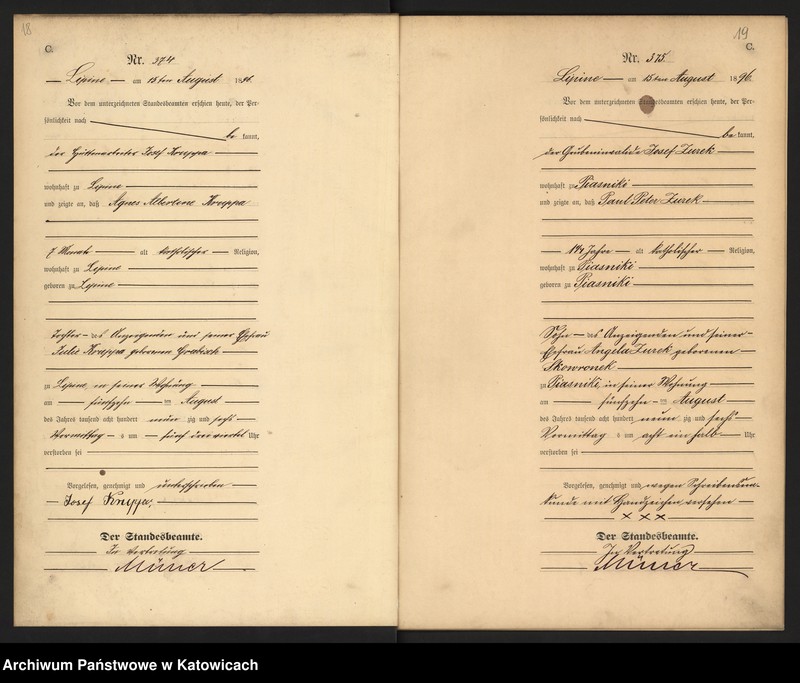 18
C.
Nr. 374
Lipine am 15ten August 1896.
Vor dem unterzeichneten Standesbeamten erschien heute, der Per-
sönlichkeit nach
be kannt,
der Hüttenarbeiter Josef Kruppa
wohnhaft zu Lipine
und zeigte an, daß Agnes Albertine Kruppa
7 Monate alt katholischer Religion,
wohnhaft zu Lipine
geboren zu Lipine
Tochter des Anzeigenden und seiner Ehefrau
Julie Kruppa geborenen
zu Lipine in seiner Wohnung
am fünfzehn ten August
des Jahres tausend acht hundert neun zig und sechs
Vormittag s um fünf drei viertel Uhr
verstorben sei
Vorgelesen, genehmigt und unterschrieben
Josef Kruppa.
Der Standesbeamte.
In Vertretung
19
C.
Nr. 375.
Lipine am 15ten August 1896.
Vor dem unterzeichneten Standesbeamten erschien heute, der Per-
sönlichkeit nach
be kannt,
der Grubeninvalide Josef Zurek
wohnhaft zu Piasniki
und zeigte an, daß Paul Peter Zurek
Jahre alt katholischer Religion,
wohnhaft zu Piasniki
geboren zu Piasniki
Sohn des Anzeigenden und seiner
Ehefrau Angela Zurek geborenen
Skowronek
zu Piasniki, in seiner Wohnung
am fünfzehn ten August
des Jahres tausend acht hundert neun zig und sechs
Vormittag s um acht ein halb Uhr
verstorben sei
Vorgelesen, genehmigt und wegen Schreibensun-
kunde mit Handzeichen versehen
x x x
Der Standesbeamte.
In Vertretung
Archiwum Państwowe w Katowicach